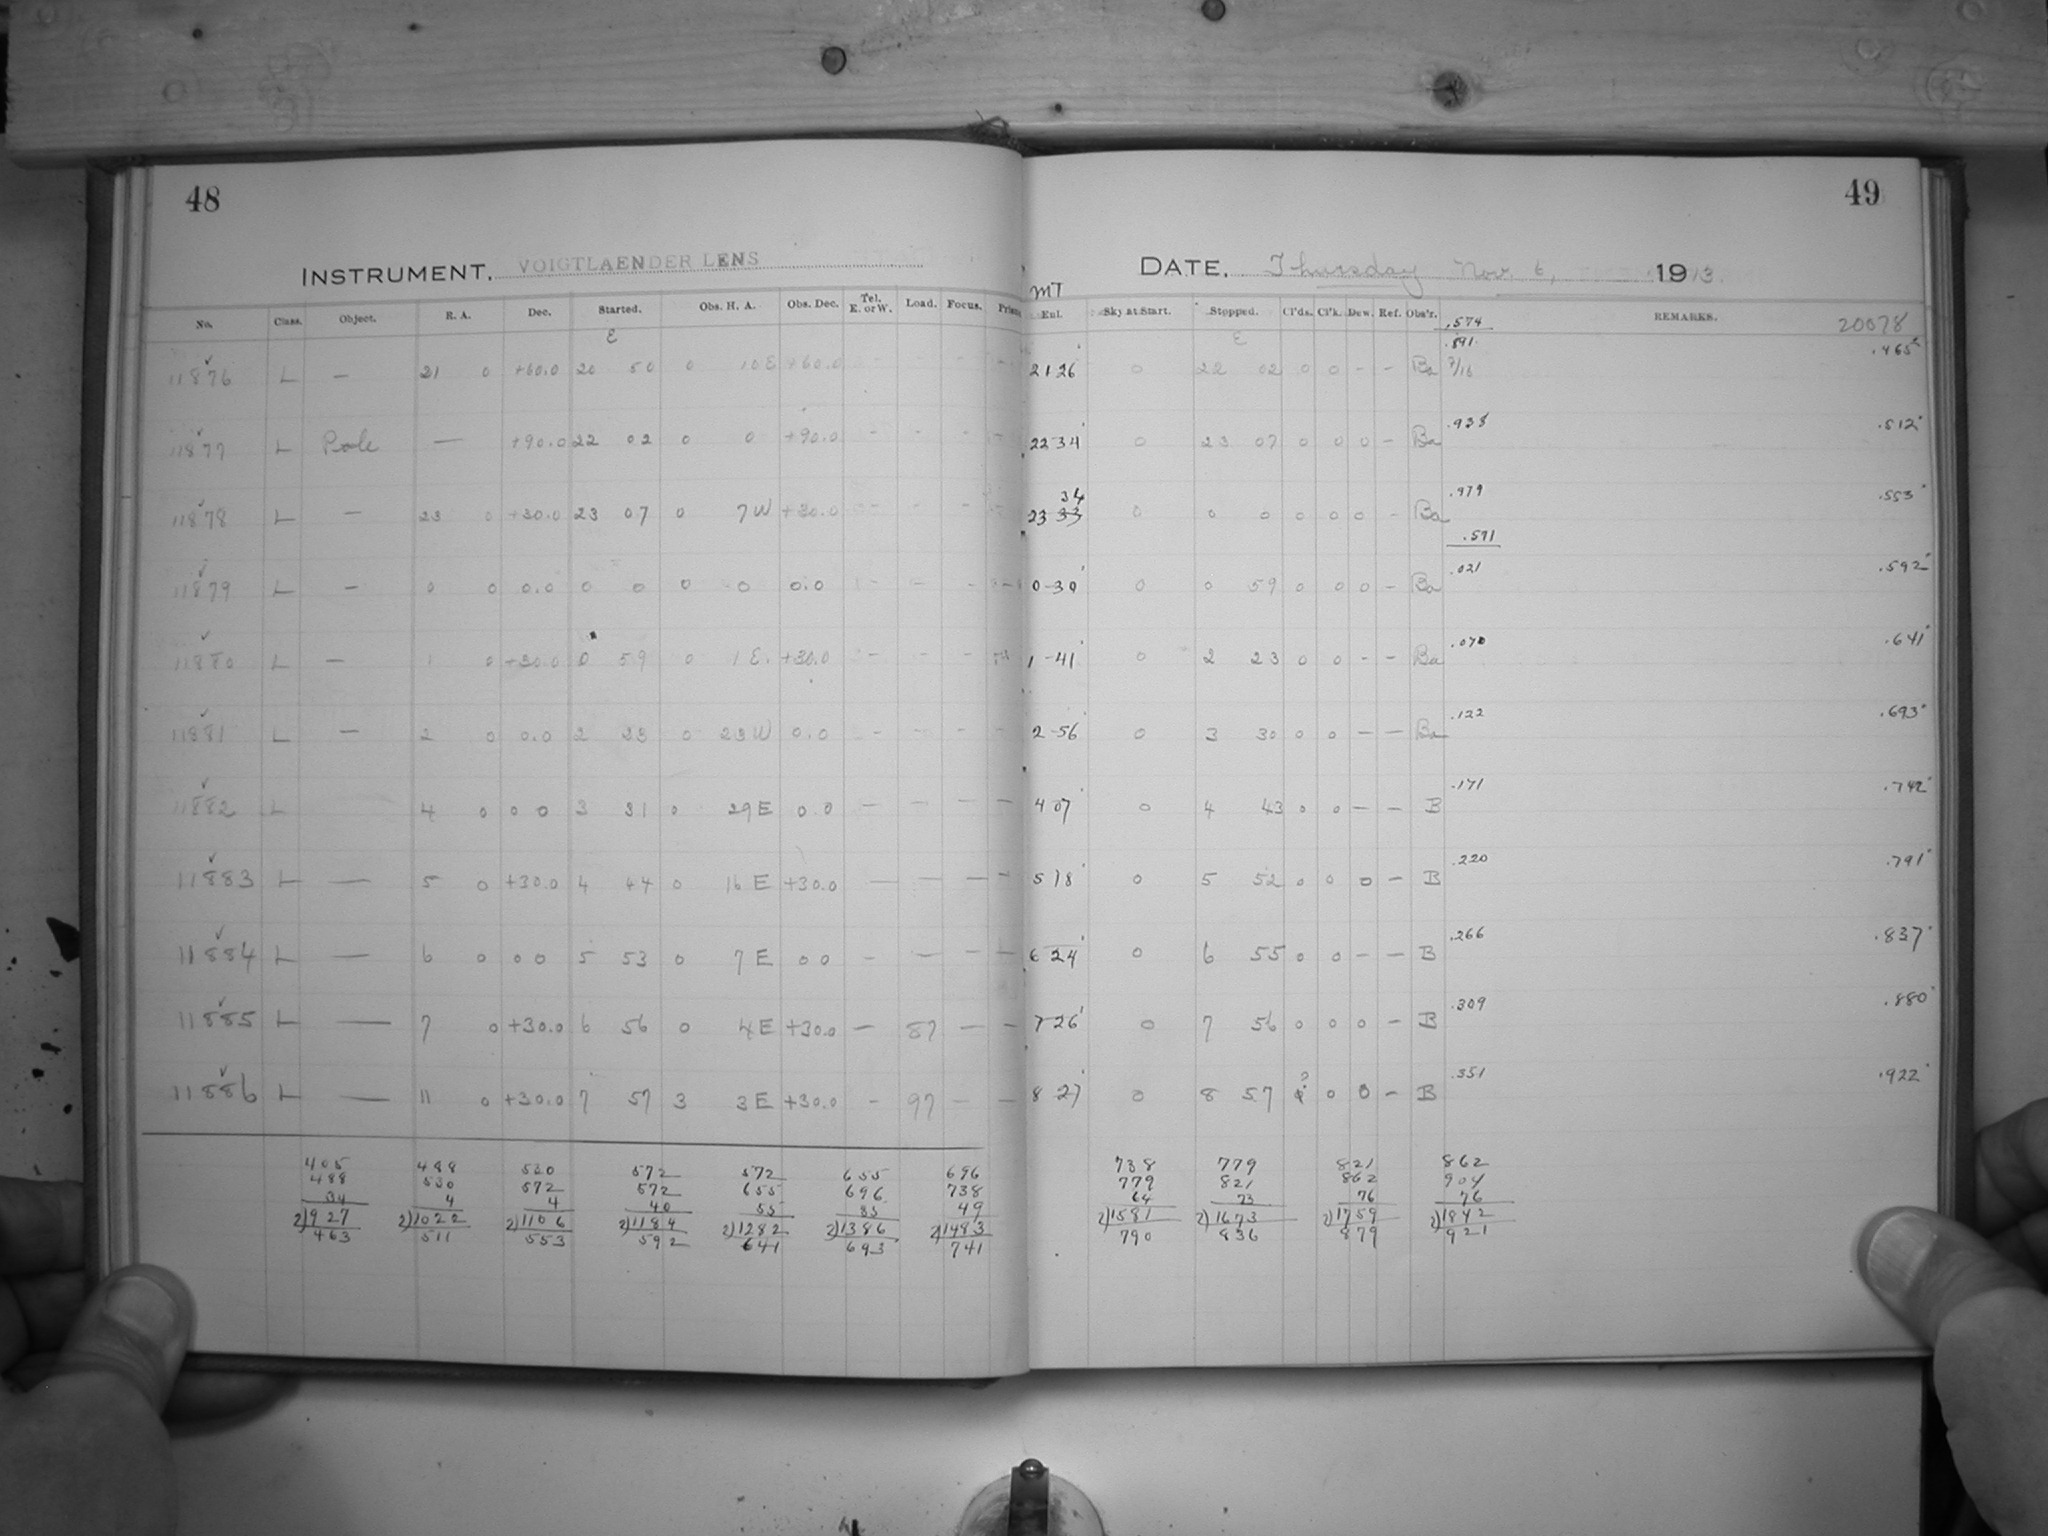 48
INSTRUMENT. VOIGTLAENDER LENS
No. Class. Object. R. A. Dec. Started. Obs. H. A. Obs. Dec. Tel. E. or W. Load. Focus. Prism
E
11876 L — 21 0 +60.0 20 50 0 10 E +60.0
11877 L Pole — +90.0 22 02 0 0 +90.0 - - - -
11878 L — 23 0 +30.0 23 07 0 7 W +30.0 - - -
11879 L — 0 0 0.0 0 0 0 0 0.0 - - - -
11880 L — 1 0 +30.0 0 59 0 1 E. +30.0 - - -
11881 L — 2 0 0.0 2 23 0 23 W 0.0 - - - -
11882 L 4 0 0 0 3 31 0 29 E 0.0 — — — —
11883 L — 5 0 +30.0 4 44 0 16 E +30.0 — — — —
11884 L — 6 0 0 0 5 53 0 7 E 0 0 - — - —
11885 L — 7 0 +30.0 6 56 0 4 E +30.0 — 87 — —
11886 L — 11 0 +30.0 7 57 3 3 E +30.0 - 97 — —
405 488 530 572 572 655 696
488 530 572 572 655 696 738
34 4 4 40 55 35 49
2)927 2)1022 2)1106 2)1184 2)1282 2)1386 2)1483
463 511 553 592 641 693 741
49
DATE. Thursday Nov. 6, 1913.
MT
Exl. Sky at Start. Stopped. Cl'ds. Cl'k. Dew. Ref. Obs'r. REMARKS. 20078
.574
E .891 .465
21 26 0 22 02 0 0 - - Ba 7/16
.935 .512
22 34 0 23 07 0 0 0 - Ba
34 .979 .553
23 33 0 0 0 0 0 0 - Ba
.571
.021 .592
0-30 0 0 59 0 0 0 - Ba
.070 .641
1-41 0 2 23 0 0 - - Ba
.122 .693
2-56 0 3 30 0 0 — — Ba
.171 .742
4 07 0 4 43 0 0 — — B
.220 .791
5 18 0 5 52 0 0 0 - B
.266 .837
6 24 0 6 55 0 0 - - B
.309 .880
7-26 0 7 56 0 0 0 - B
.351 .922
8 27 0 8 57 ? 0 0 - B
738 779 821 862
779 821 862 904
64 73 76 76
2)1581 2)1673 2)1759 2)1842
790 836 879 921